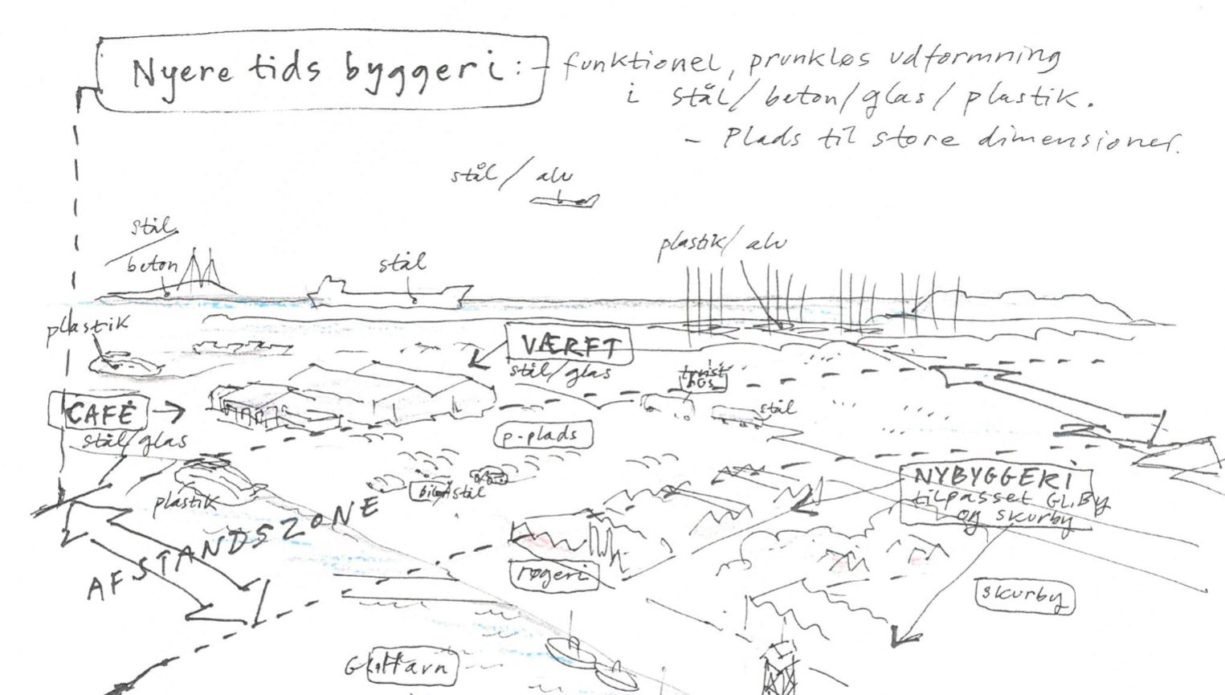 Nyere tids byggeri: - funktionel, prunkløs udformning
i stål/beton/glas/plastik.
- Plads til store dimensioner.
stål / alu
stål
beton
stål
plastik/alu
plastik
VÆRFT
stål/glas
CAFÉ
stål/glas
bus
stål
p-plads
plastik
biler/stål
NYBYGGERI
tilpasset Gl.By
og skurby
AFSTANDSZONE
røgeri
skurby
Gl.Havn